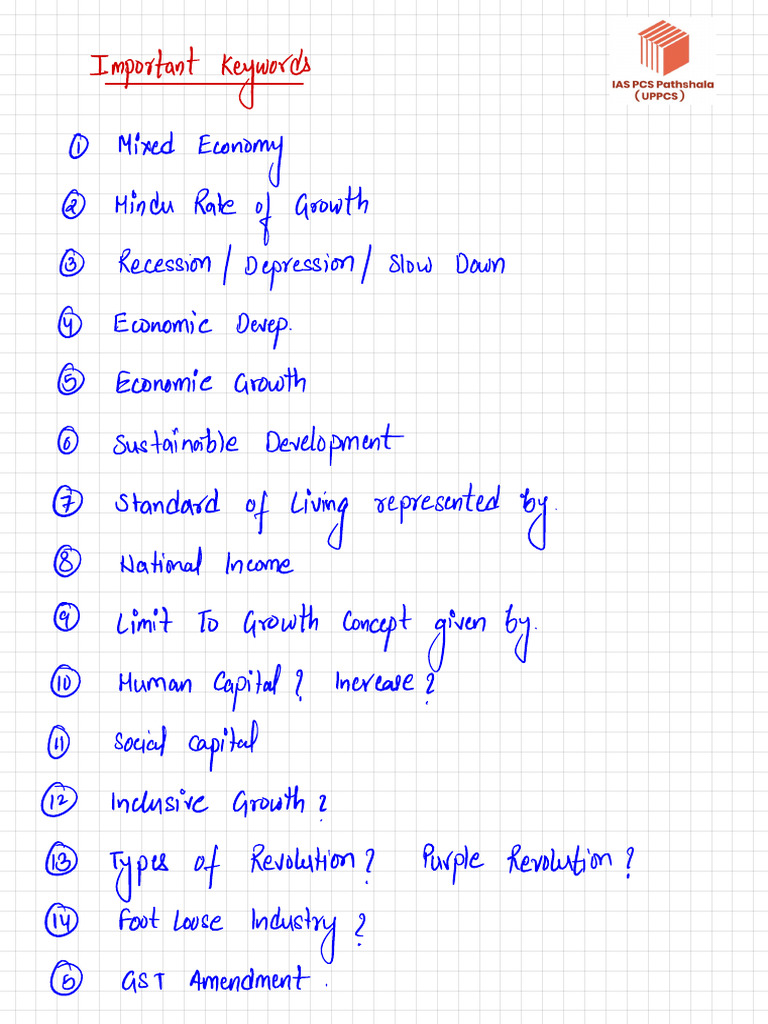 Important Keywords
IAS PCS Pathshala
(UPPCS)
① Mixed Economy
② Hindu Rate of Growth
③ Recession / Depression / Slow Down
④ Economic Devep.
⑤ Economic Growth
⑥ Sustainable Development
⑦ Standard of Living represented by.
⑧ National Income
⑨ Limit To Growth Concept given by.
⑩ Human Capital? Increase?
⑪ Social Capital
⑫ Inclusive Growth?
⑬ Types of Revolution? Purple Revolution?
⑭ Foot Loose Industry?
⑤ GST Amendment.